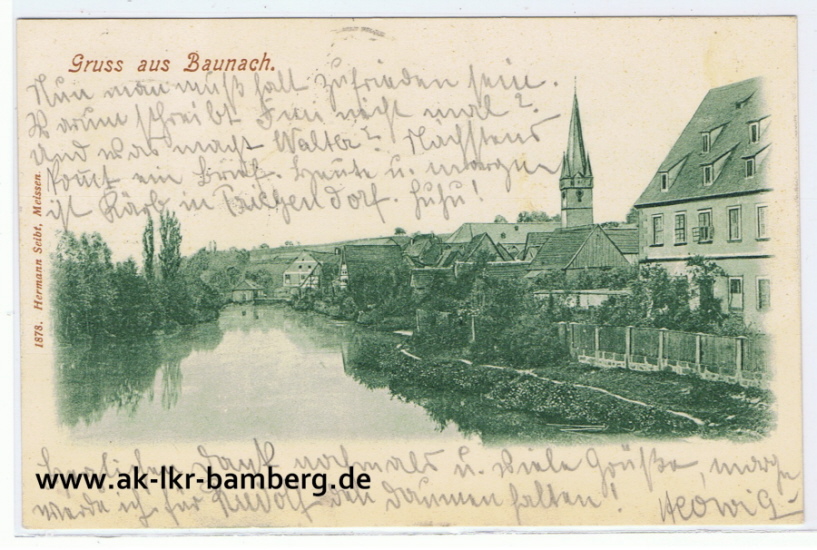 Gruss aus Baunach.
Nun man muß halt zufrieden sein.
Warum schreibt nicht mal?
Und was macht Walter? Nächstens
kommt ein Brief. Heute u. morgen
ist Kärb in . Huhu!
1878. Hermann Seibt, Meissen.
Herzlichen Dank nochmals u. viele Grüße, morgen
werde ich für Rudolf den Daumen halten! Hedwig
www.ak-lkr-bamberg.de